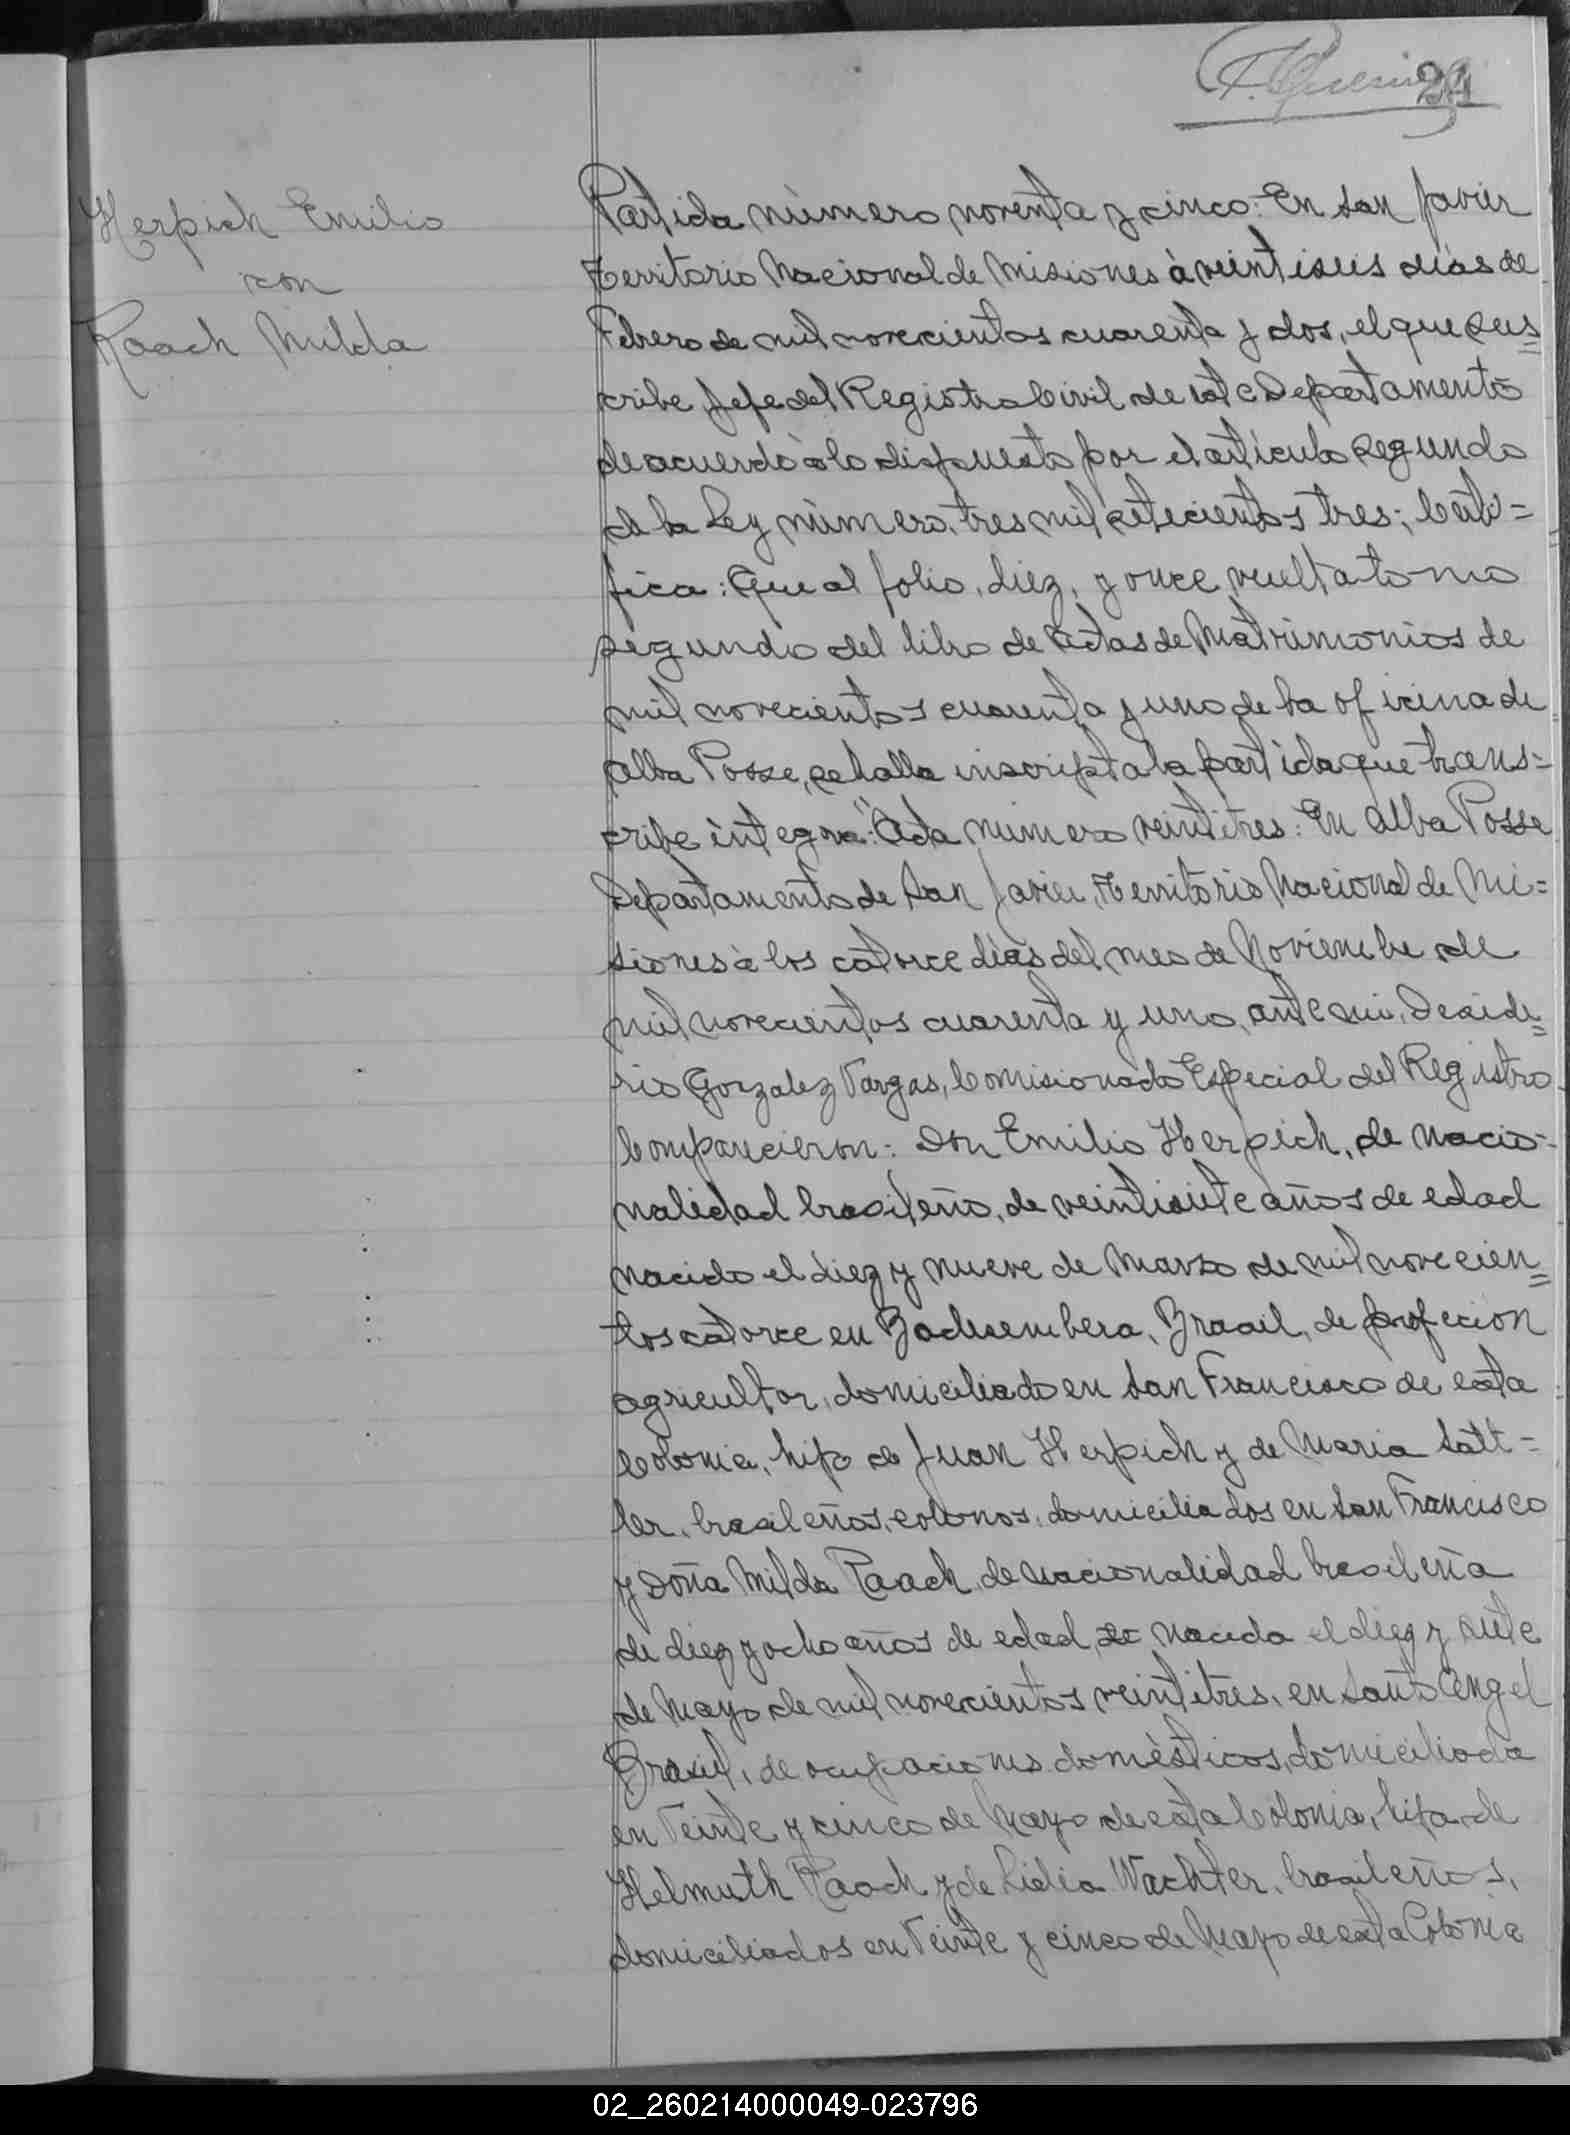 24
Herpich Emilio
con
Raach Milda
Partida nùmero noventa y cinco: En San Javier
Territorio Nacional de Misiones à veintiseis dias de
Febrero de mil novecientos cuarenta y dos, el que sus=
cribe Jefe del Registro Civil de este Departamento
de acuerdo à lo dispuesto por el articulo segundo
de la Ley nùmero, tres mil setecientos tres; Certi=
fica: Que al folio, diez, y once vuelta tomo
segundo del libro de Actas de Matrimonios de
mil novecientos cuarenta y uno de la oficina de
Alba Posse, se halla inscripta la partida que trans=
cribe ìntegra: "Acta nùmero veintitres: En Alba Posse
Departamento de San Javier, Territorio Nacional de Mi=
siones à los catorce dìas del mes de Noviembre de
mil novecientos cuarenta y uno, ante mi, Deside=
rio Gonzalez Vargas, Comisionado Especial del Registro
Comparecieron: Don Emilio Herpich, de nacio=
nalidad brasileño, de veintisiete años de edad
nacido el diez y nueve de Marzo de mil novecien=
tos catorce en Brasil, de profecion
agricultor, domiciliado en San Francisco de esta
Colonia, hijo de Juan Herpich y de Maria Satt=
ler, brasileños, colonos, domiciliados en San Francisco
y Doña Milda Raach, de nacionalidad brasileña
de diez y ocho años de edad, nacida el diez y siete
de Mayo de mil novecientos veintitrès, en Santo Angel
Brasil, de ocupaciones domèsticos, domiciliada
en Veinte y cinco de Mayo de esta Colonia, hija de
Helmuth Raach y de Lidia Wachter, brasileños,
domiciliados en Veinte y cinco de Mayo de esta Colonia
02_260214000049-023796